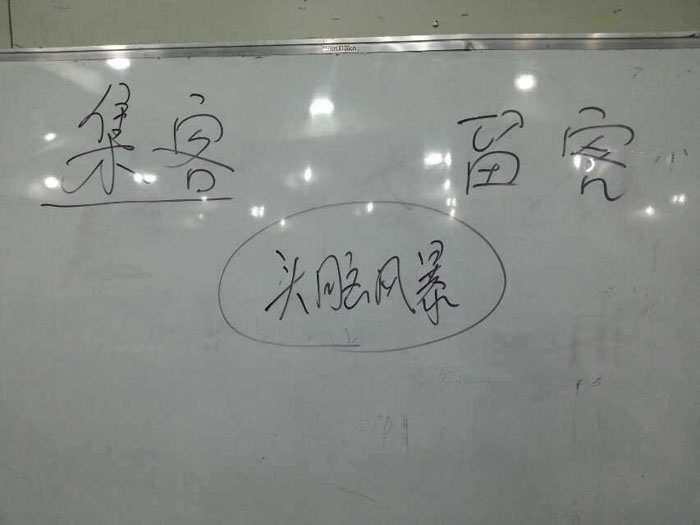 集客 留客
头脑风暴